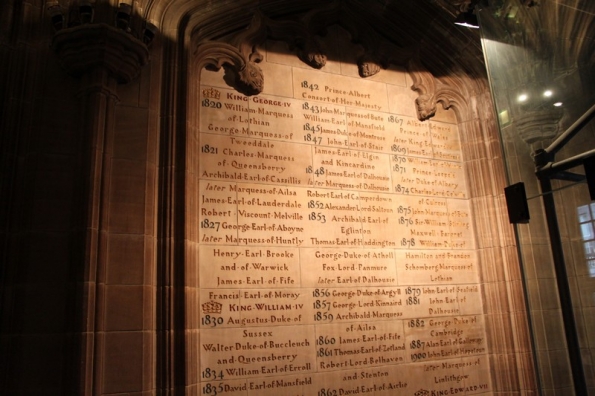 KING·GEORGE·IV
1820 William·Marquess
of Lothian
George·Marquess·of
Tweeddale
1821 Charles·Marquess
of Queensberry
Archibald·Earl·of·Cassillis
later Marquess·of·Ailsa
James·Earl·of·Lauderdale
Robert·Viscount·Melville
1827 George·Earl·of·Aboyne
later Marquess·of·Huntly
Henry·Earl·Brooke
and·of·Warwick
James·Earl·of·Fife
Francis·Earl·of·Moray
KING·WILLIAM·IV
1830 Augustus·Duke·of
Sussex
Walter·Duke·of·Buccleuch
and·Queensberry
1834 William·Earl·of·Erroll
1835 David·Earl·of·Mansfield
1842 Prince·Albert
Consort·of·Her·Majesty
1843 John·Marquess·of·Bute
William·Earl·of·Mansfield
1845 James·Duke·of·Montrose
1847 John·Earl·of·Stair
James·Earl·of·Elgin
and·Kincardine
1848 James·Earl·of·Dalhousie
later Marquess·of·Dalhousie
Robert·Earl·of·Camperdown
1852 Alexander·Lord·Saltoun
1853 Archibald·Earl·of
Eglinton
Thomas·Earl·of·Haddington
George·Duke·of·Atholl
Fox·Lord·Panmure
later Earl·of·Dalhousie
1856 George·Duke·of·Argyll
1857 George·Lord·Kinnaird
1859 Archibald·Marquess
of·Ailsa
1860 James·Earl·of·Fife
1861 Thomas·Earl·of·Zetland
Robert·Lord·Belhaven
and·Stenton
1862 David·Earl·of·Airlie
1867 Albert·Edward
Prince·of·Wales
1869
1870
1871 Prince
later Duke·of·Albany
1874 Charles·Lord
of Cathcart
1875 John·Marquess·of·Bute
1876 Sir·William·Stirling
Maxwell·Baronet
1878 William
Hamilton·and·Brandon
Schomberg·Marquess·of
Lothian
1879 John·Earl·of
1881 John·Earl·of
Dalhousie
1882 George·Duke·of
Cambridge
1887 Alan·Earl·of·Galloway
1900 John·Earl·of·Hopetoun
later Marquess·of
Linlithgow
KING·EDWARD·VII